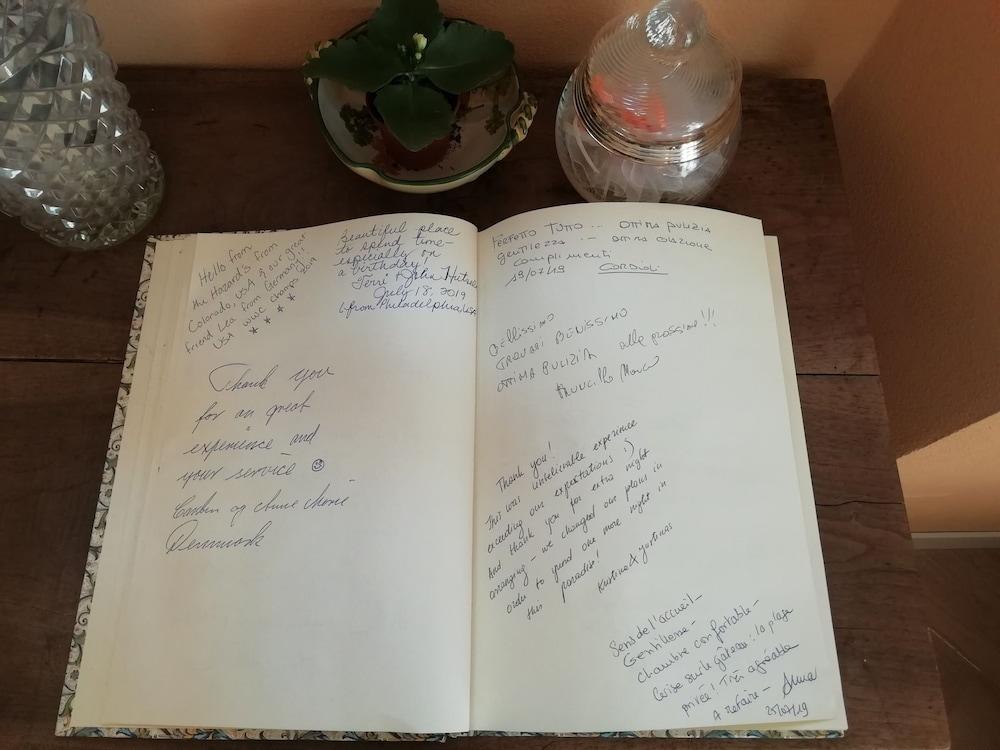 Hello from
the Hazard's from
Colorado, USA & our great
friend Lea from Germany!!
USA WWC Champs 2019
Beautiful place
to spend time-
especially on
a birthday!
Terri & John
July 18, 2019
from Philadelphia, USA
Thank you
for an great
experience and
your service ☺
og Anne Marie
Denmark
PERFETTO TUTTO... OTTIMA PULIZIA
gentilezza... ottima colazione
complimenti
19/07/19
Bellissimo
TROVATI BENISSIMO
OTTIMA PULIZIA alla prossima!!!
Marco
Thank you!
This was unbelievable experience
exceeding our expectations :)
And thank you for extra night
arranging - we changed our plans in
order to spend one more night in
this paradise!
Kristina & Justinas
Sens de l'accueil -
Gentillesse -
Chambre confortable -
Cerise sur le gâteau : la plage
privée! Très agréable
A refaire - Anna
25/07/19